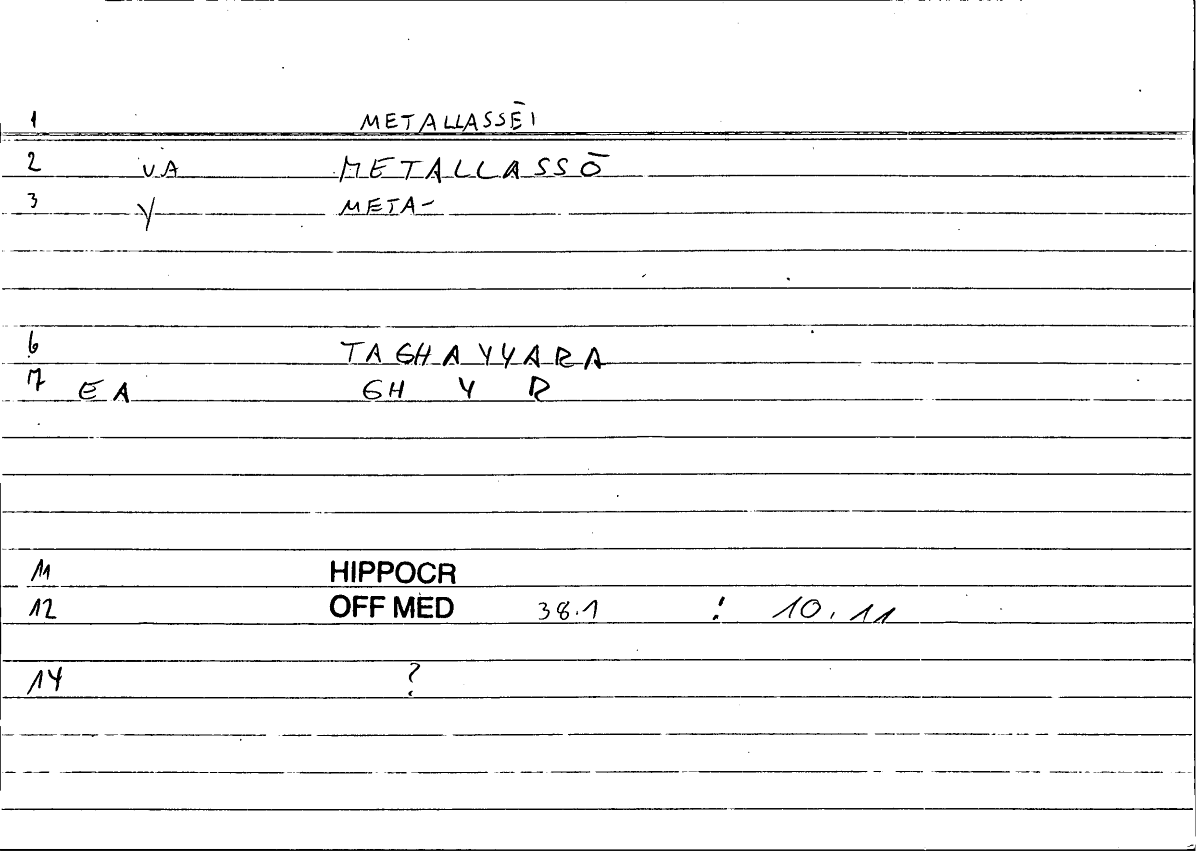 1 METALLASSĒI
2 VA METALLASSŌ
3 Y META-
6 TAGHAYYARA
7 EA GH Y R
11 HIPPOCR
12 OFF MED 38.1 : 10.11
14 ?